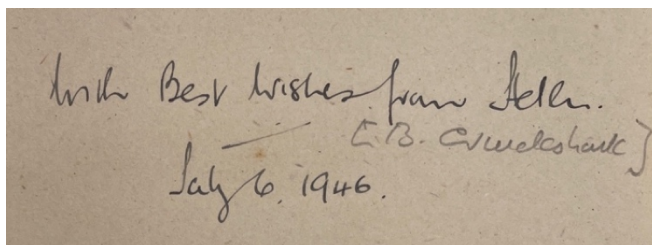 With Best Wishes from Helen.
[B. Cruickshank]
July 6. 1946.